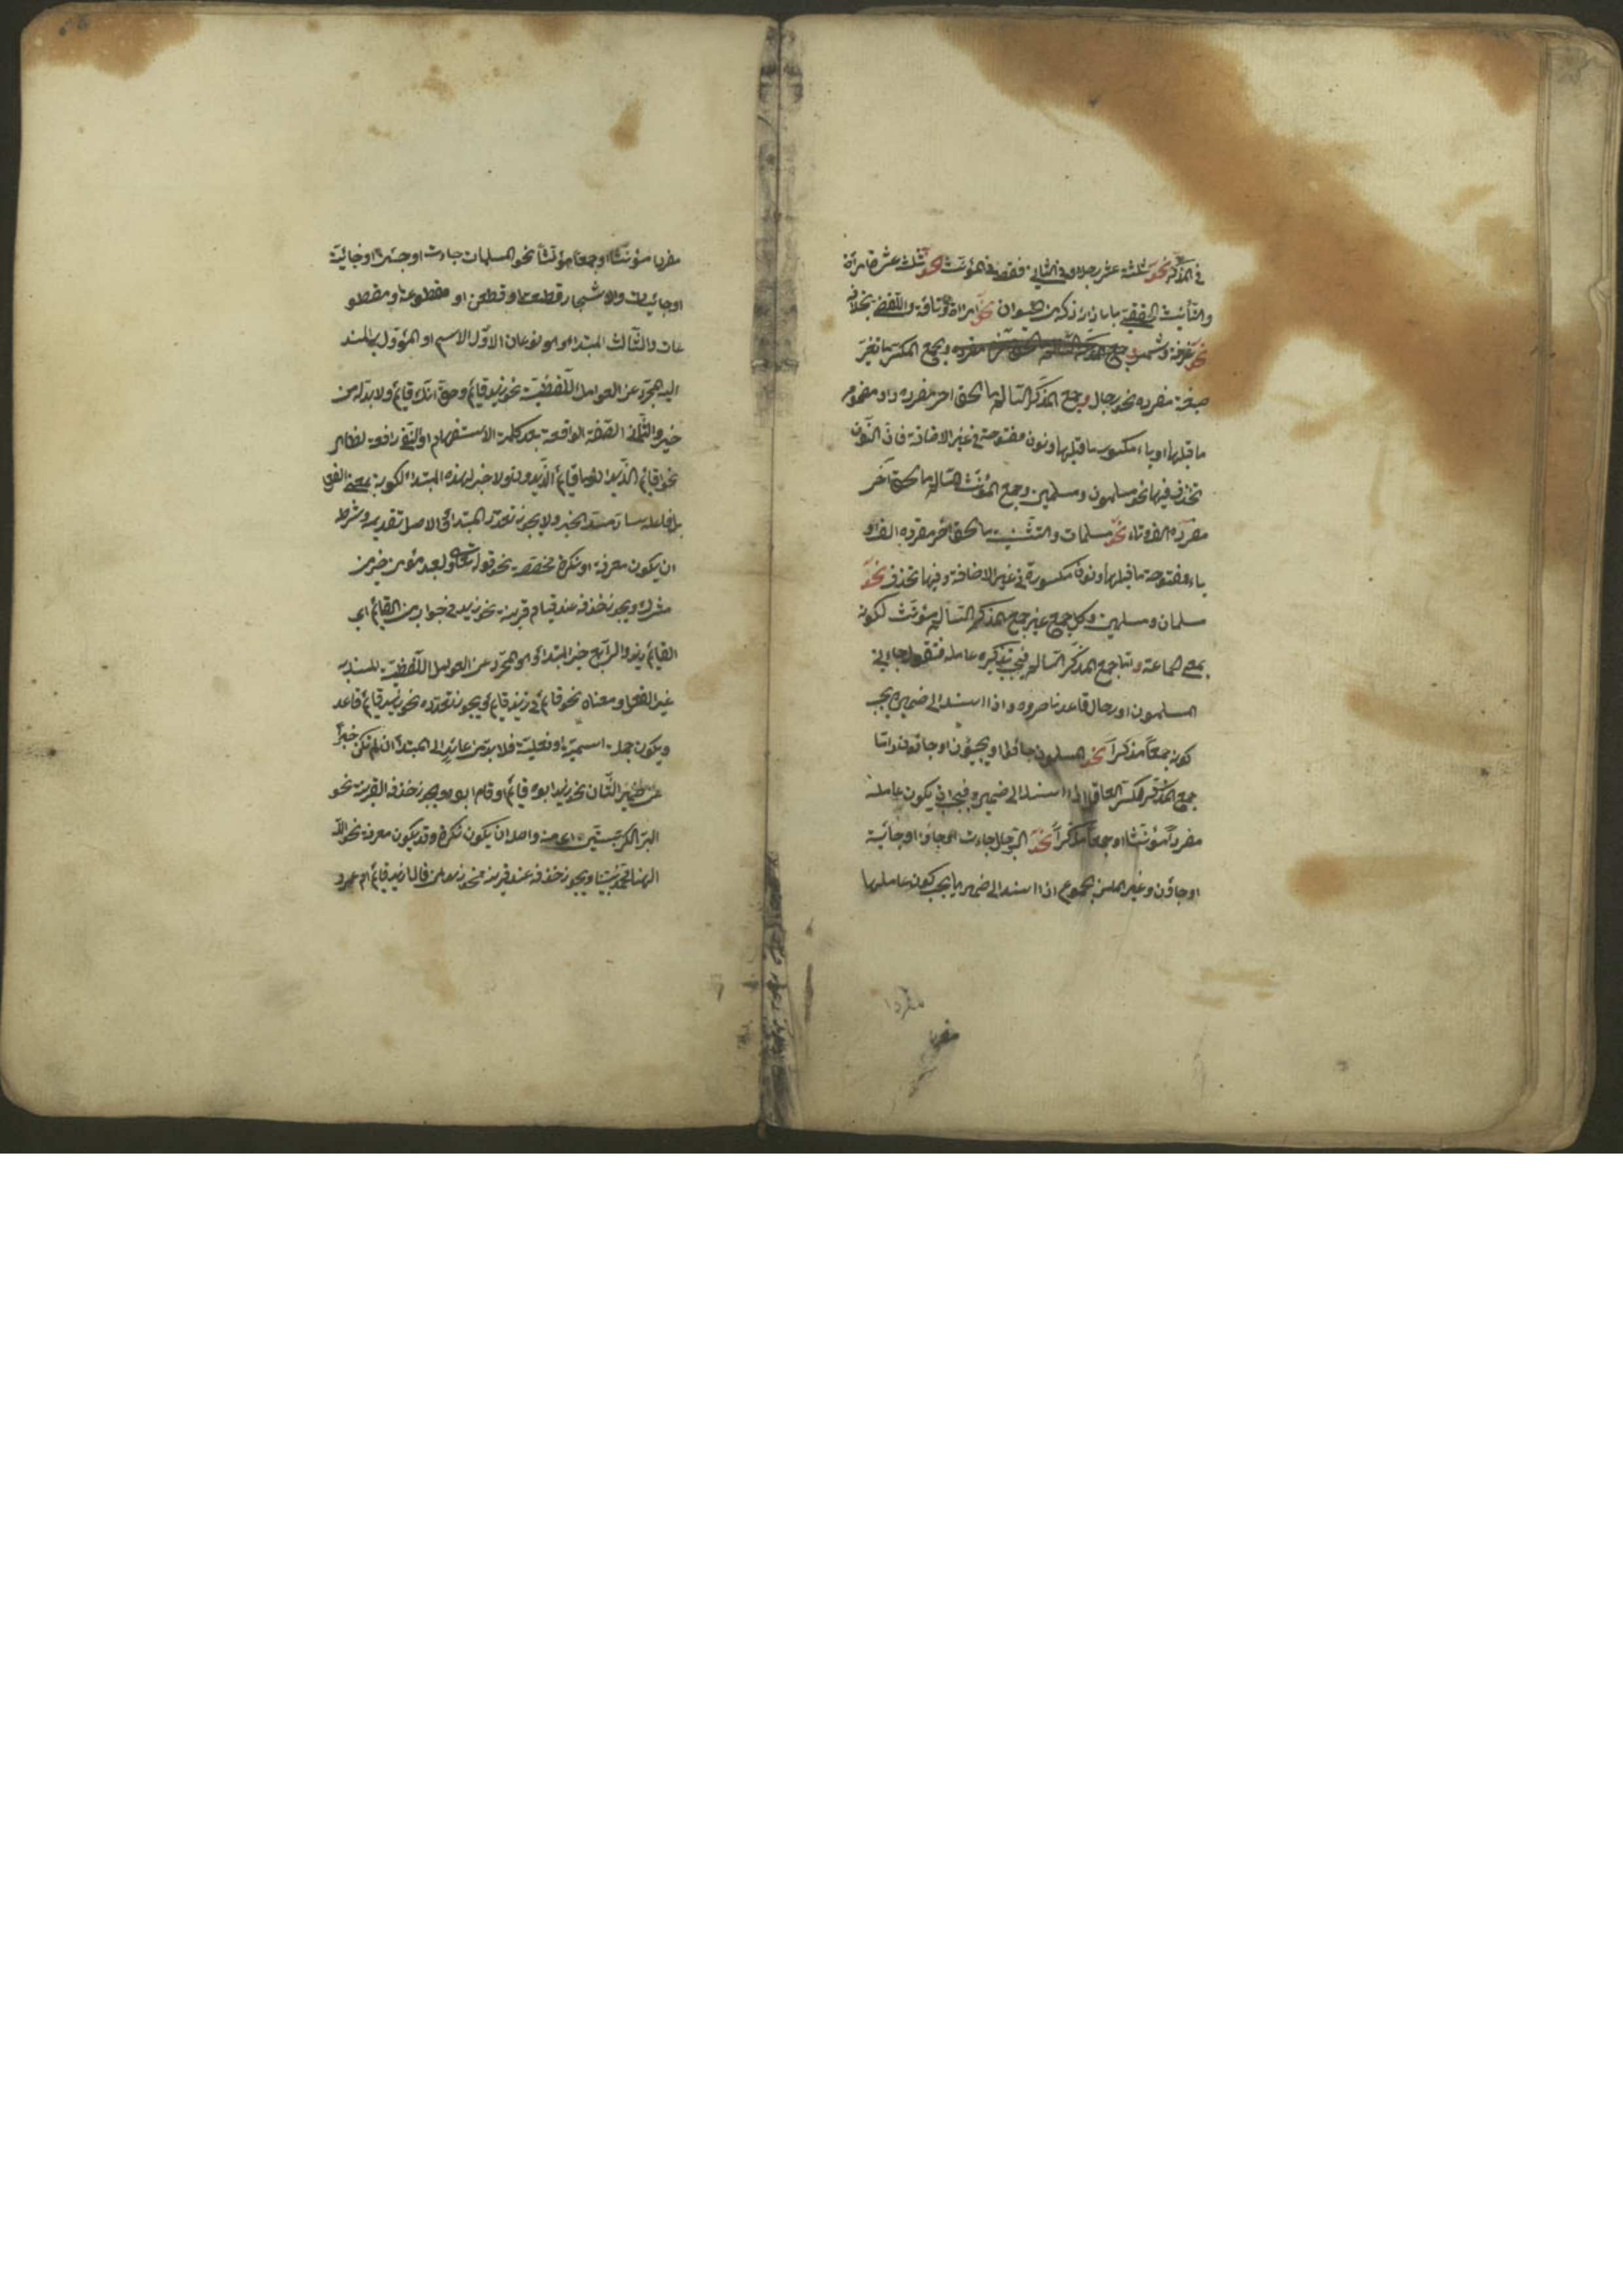 في المذكر نحو ثلثة عشر رجلا وفي الثاني فقط في المؤنث نحو ثلث عشرة امرأة
والتأنيث الحقيقي ما بازائه ذكر من الحيوان نحو امرأة وناقة واللفظي بخلافه
نحو غرفة وشمس وجمع المكسر ما تغير
صيغة مفرده نحو رجال وجمع المذكر السالم ما لحق اخر مفرده واو مضموم
ما قبلها او ياء مكسور ما قبلها ونون مفتوحة في غير الاضافة فان النون
تحذف فيها نحو مسلمون ومسلمين وجمع المؤنث السالم ما لحق آخر
مفرده الف وتاء نحو مسلمات والتثنية ما لحق اخر مفرده الف او
ياء مفتوحة ما قبلها ونون مكسورة في غير الاضافة وفيها تحذف نحو
مسلمان ومسلمين وكل جمع غير جمع المذكر السالم مؤنث لكونه
بمعنى جماعة واما جمع المذكر السالم فيجب تذكير عامله فتقول جاءني
المسلمون او رجال قاعد ناصروه واذا اسند الى ضميره يجب
كونه جمعا مذكرا نحو المسلمون جاؤا او يجيئون او جاؤن واما
جمع المذكر المكسر العاقل اذا اسند الى ضميره فيجب ان يكون عامله
مفردا مؤنثا او جمعا مذكرا نحو الرجال جاءت او جاؤا او جائية
او جاؤن وغيرهما من الجموع اذا اسند الى ضميرها يجب كون عاملها
مفردا
مفردا
مفردا مؤنثا او جمعا مؤنثا نحو المسلمات جاءت او جئن او جائية
او جائيات والاشجار قطعت او قطعن او مقطوعة او مقطو
عات والثالث المبتدا وهو نوعان الاول الاسم او المؤول به المسند
اليه المجرد عن العوامل اللفظية نحو زيد قائم وحق انك قائم ولا بد له من
خبر والثاني الصفة الواقعة بعد كلمة الاستفهام او النفي رافعة لظاهر
نحو اقائم الزيدان وما قائم الزيدون ولا خبر لهذا المبتدا لكونه بمعنى الفعل
بل فاعله ساد مسد الخبر ولا يجوز تعدد المبتدا والاصل تقديمه وشرطه
ان يكون معرفة او نكرة مخصصة نحو قوله تعالى ولعبد مؤمن خير من
مشرك ويجوز حذفه عند قيام قرينة نحو زيد في جواب من القائم اي
القائم زيد والرابع خبر المبتدا وهو المجرد عن العوامل اللفظية المسند به
غير الفعل ومعناه نحو قائم في زيد قائم ويجوز تعدده نحو زيد قائم قاعد
ويكون جملة اسمية او فعلية فلا بد من عائد الى المبتدا ان لم تكن خبرا
عن ضمير الشان نحو زيد ابوه قائم او قام ابوه ويجوز حذفه لقرينة نحو
البر الكر بستين اي منه واصله ان يكون نكرة وقد يكون معرفة نحو الله
الهنا محمد نبينا ويجوز حذفه عند قرينة نحو زيد لمن قال ازيد قائم ام عمرو